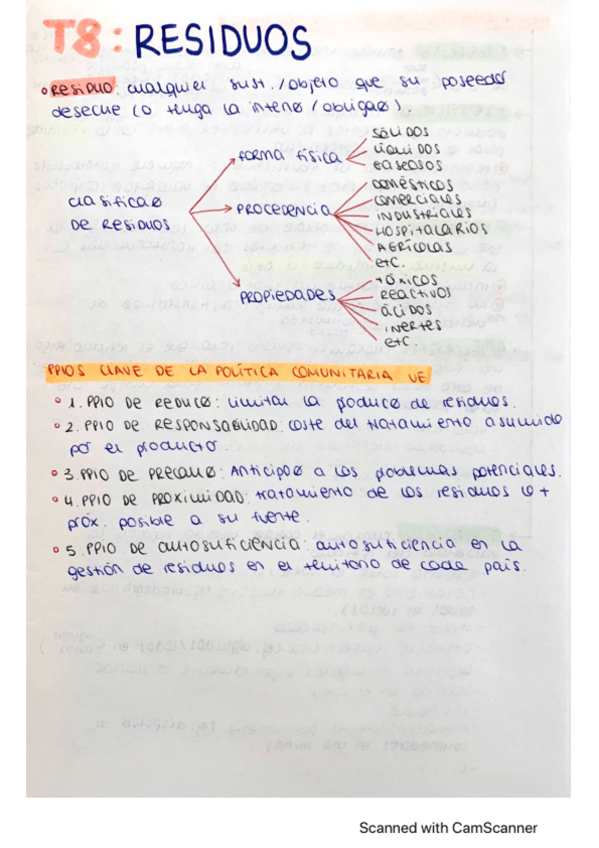 T8: RESIDUOS
• RESIDUO: cualquier sust. / objeto que su poseedor
deseche (o tenga la intenø / obligaø).
forma física
SÓLIDOS
LÍQUIDOS
GASEOSOS
clasificaø
DE RESIDUOS
PROCEDENCIA
DOMÉSTICOS
COMERCIALES
INDUSTRIALES
HOSPITALARIOS
AGRÍCOLAS
etc.
PROPIEDADES
TÓXICOS
REACTIVOS
ÁCIDOS
INERTES
etc.
PPIOS CLAVE DE LA POLÍTICA COMUNITARIA UE
• 1. PPIO DE REDUCø: limitar la producø de residuos.
• 2. PPIO DE RESPONSABILIDAD: coste del tratamiento asumido
por el productor.
• 3. PPIO DE PRECAUø: Anticipaø a los problemas potenciales.
• 4. PPIO DE PROXIMIDAD: tratamiento de los residuos lo +
próx. posible a su fuente.
• 5. PPIO DE autosuficiencia: autosuficiencia en la
gestión de residuos en el territorio de cada país.
Scanned with CamScanner